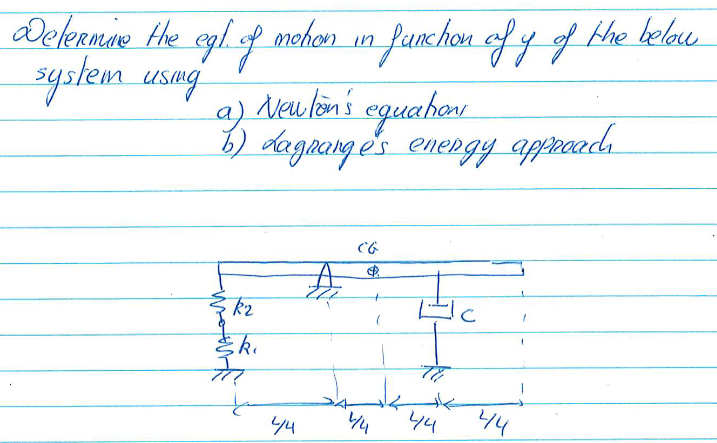 Determine the eqt. of motion in function of y of the below
system using
a) Newton's equations
b) Lagrange's energy approach
CG
k2
C
k1
L/4 L/4 L/4 L/4